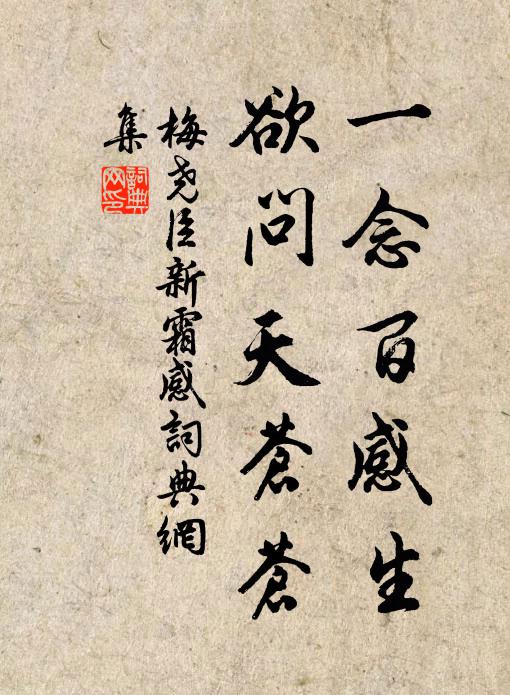 一念百感生
欲問天蒼蒼
梅堯臣新霜感詞典網
集
詞典
网印